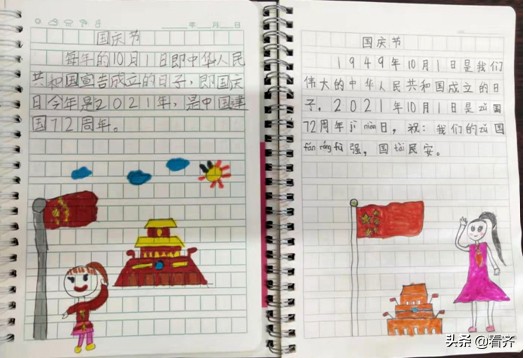 年 月 日
国庆节
每年的10月1日即中华人民
共和国宣告成立的日子，即国庆
日今年是2021年，是中国建
国712周年。
国庆节
1949年10月1日是我们
伟大的中华人民共和国成立的日
子，2021年10月1日是zǔ国
72周年jì niàn日，祝：我们的zǔ国
fán róng fù强，国tài民安。
头条 @看齐